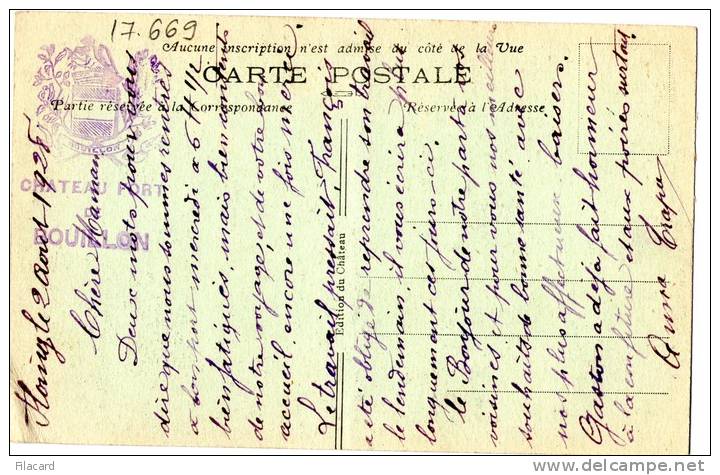 17.669
Aucune inscription n'est admise du côté de la Vue
CARTE POSTALE
Partie réservée à la Correspondance
Réservée à l'Adresse
BOUILLON
CHATEAU FORT
DE
BOUILLON
Edition du Château
le 2 Août 1928
Chère Maman
Deux mots pour vous
dire que nous sommes rentrés
à bon port mercredi à 6 H 1/2
bien fatigués, mais bien contents
de notre voyage, et de votre bon
accueil, encore une fois merci
Le travail pressait, François
a été obligé de reprendre son travail
le lendemain, il vous écrira plus
longuement ces jours-ci.
le Bonjour de notre part aux
voisines et pour vous nos meilleurs
souhaits de bonne santé avec
nos plus affectueux baisers.
Gaston a déjà fait honneur
à la confiture et aux poires surtout.
filacard
www.delcampe.net